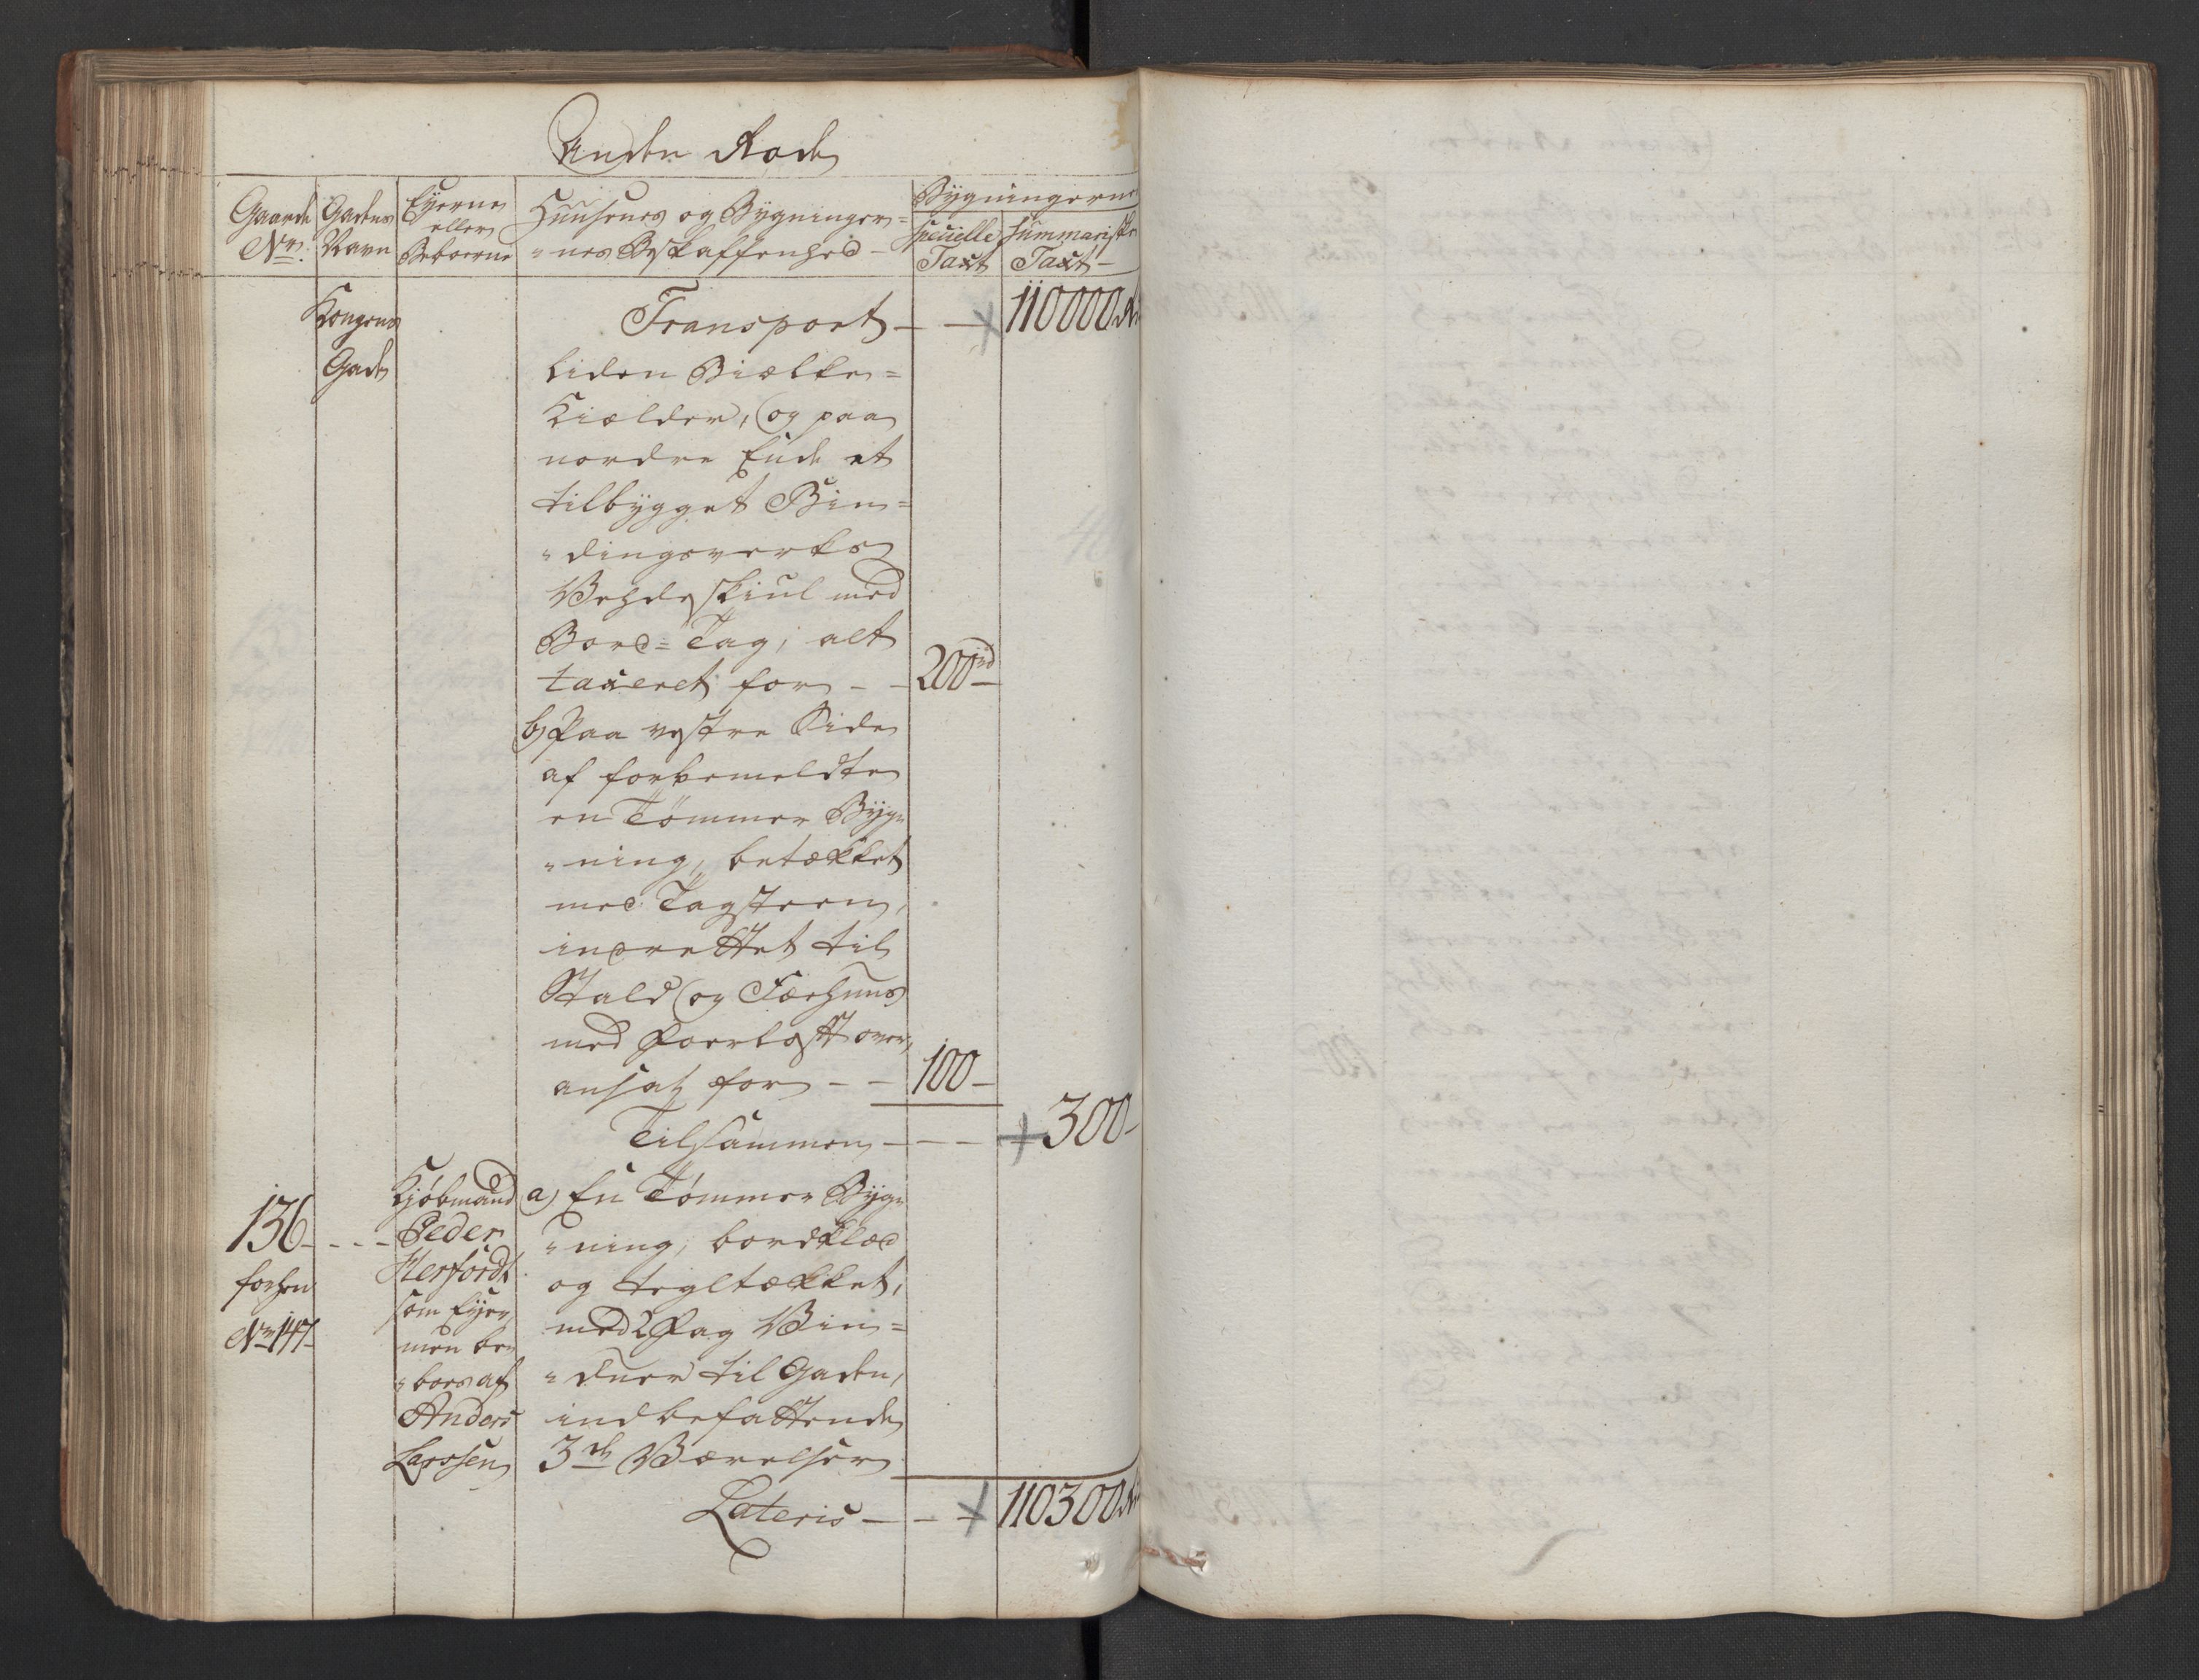 Anden Rode
Gaarde Nr.
Gadens Navn
Eyerne eller Beboerne
Huusenes og Bygninger=
"nes Beskaffenhed -
Bygningernes
specielle Taxt
summariske Taxt -
Kongens
Gade
Transport - - 110000 Rd
liden Biælke=
Kiælder, og paa
nordre Ende et
tilbygget Bin=
"dingsverks
Vedeskiul med
Bord=Tag; alt
taxeret for - - 200 rd -
b) Paa vestre Side
af forbemeldte
en Tømmer Byg=
"ning, betækket
med Tagsteen,
indrettet til
Stald og Fæehuus
med Foerloftt over,
ansatz for - - 100 -
Tilsammen - - - 300 -
136 - - - -
forhen
No 147
Kjøbmand
Peder
Herfordt
som Eyer,
men be=
"boes af
Anders
Larssen
a) En Tømmer Byg=
"ning, bordklæd
og tegltækket,
med 2 Fag Vin=
"duer til Gaden,
indbefattende
3de Værelser
Lateris - - - 110300 Rd